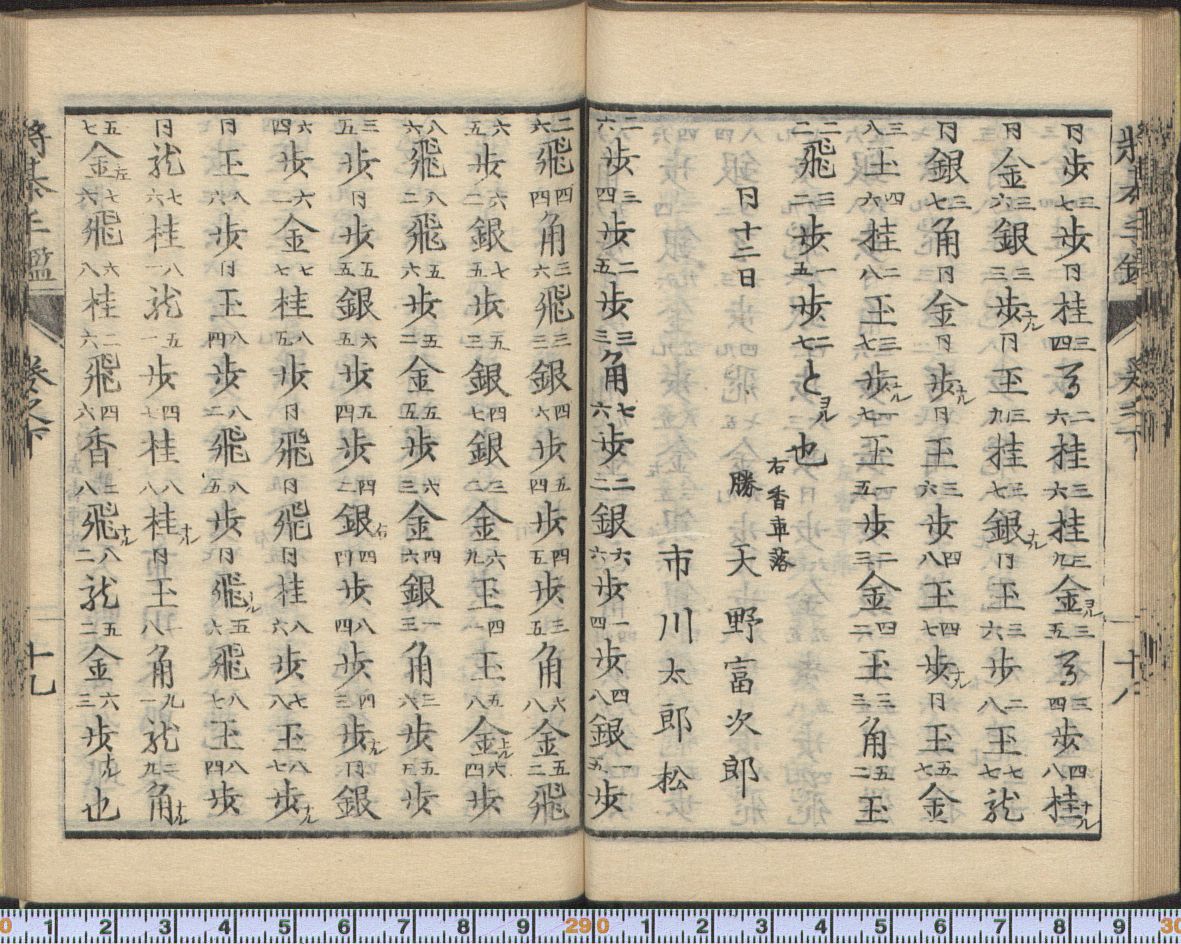 將棊手鑑 巻之下 十八
同歩 三七歩 同桂 三四馬 二六桂 三六桂 三九金ヨル 三五馬 三四歩 四八桂ナル
同金 三六銀 三三歩ナル 同玉 三九桂 三七銀ナル 同玉 三六歩 二八玉 七七龍
同銀 三七角 同金 同歩ナル 同玉 三六歩 四八玉 四七歩ナル 同玉 五七金
三八玉 四六桂 二八玉 三七歩ナル 一七玉 一五歩 二三金 四二玉 三三角 五二玉
二二飛 三二歩 一五歩 二七とヨル也
同十二日
右香車落
勝 天野富次郎
市川太郎松
二六歩 三四歩 二五歩 三三角 七六歩 二二銀 六六歩 一四歩 四八銀 一五歩
二六飛 四四角 三六飛 三三銀 四六歩 五四歩 四五歩 三五角 六八金 五二飛
六五歩 六二銀 七五歩 五三銀 四七銀 三二金 六九玉 四一玉 五八金上ル 六四歩
八六飛 八二飛 五六歩 五二金 五五歩 六三金 四六銀 一三角 三六歩 五五歩
三五歩 同歩 五五銀 六五歩 五四歩 四二銀右 四四歩 八四歩 四三歩ナル 同銀
六四歩 六二金 七七桂 八五歩 同飛 同飛 同桂 八六歩 七八玉 八七歩ナル
同玉 八六歩 同玉 八四歩 八二飛 八五歩 同飛ナル 五六飛 八七玉 八四歩
同龍 七六桂 八一龍 五一歩 四七桂 八八桂ナル 同玉 八角 九一龍 二九角ナル
五七金左 七六飛 六八桂 二六飛 四六香 二八飛ナル 八二龍 五二金 六三歩ナル也
將棊手鑑 巻之下 十九
0 1 2 3 4 5 6 7 8 9 29 0 1 2 3 4 5 6 7 8 9 30